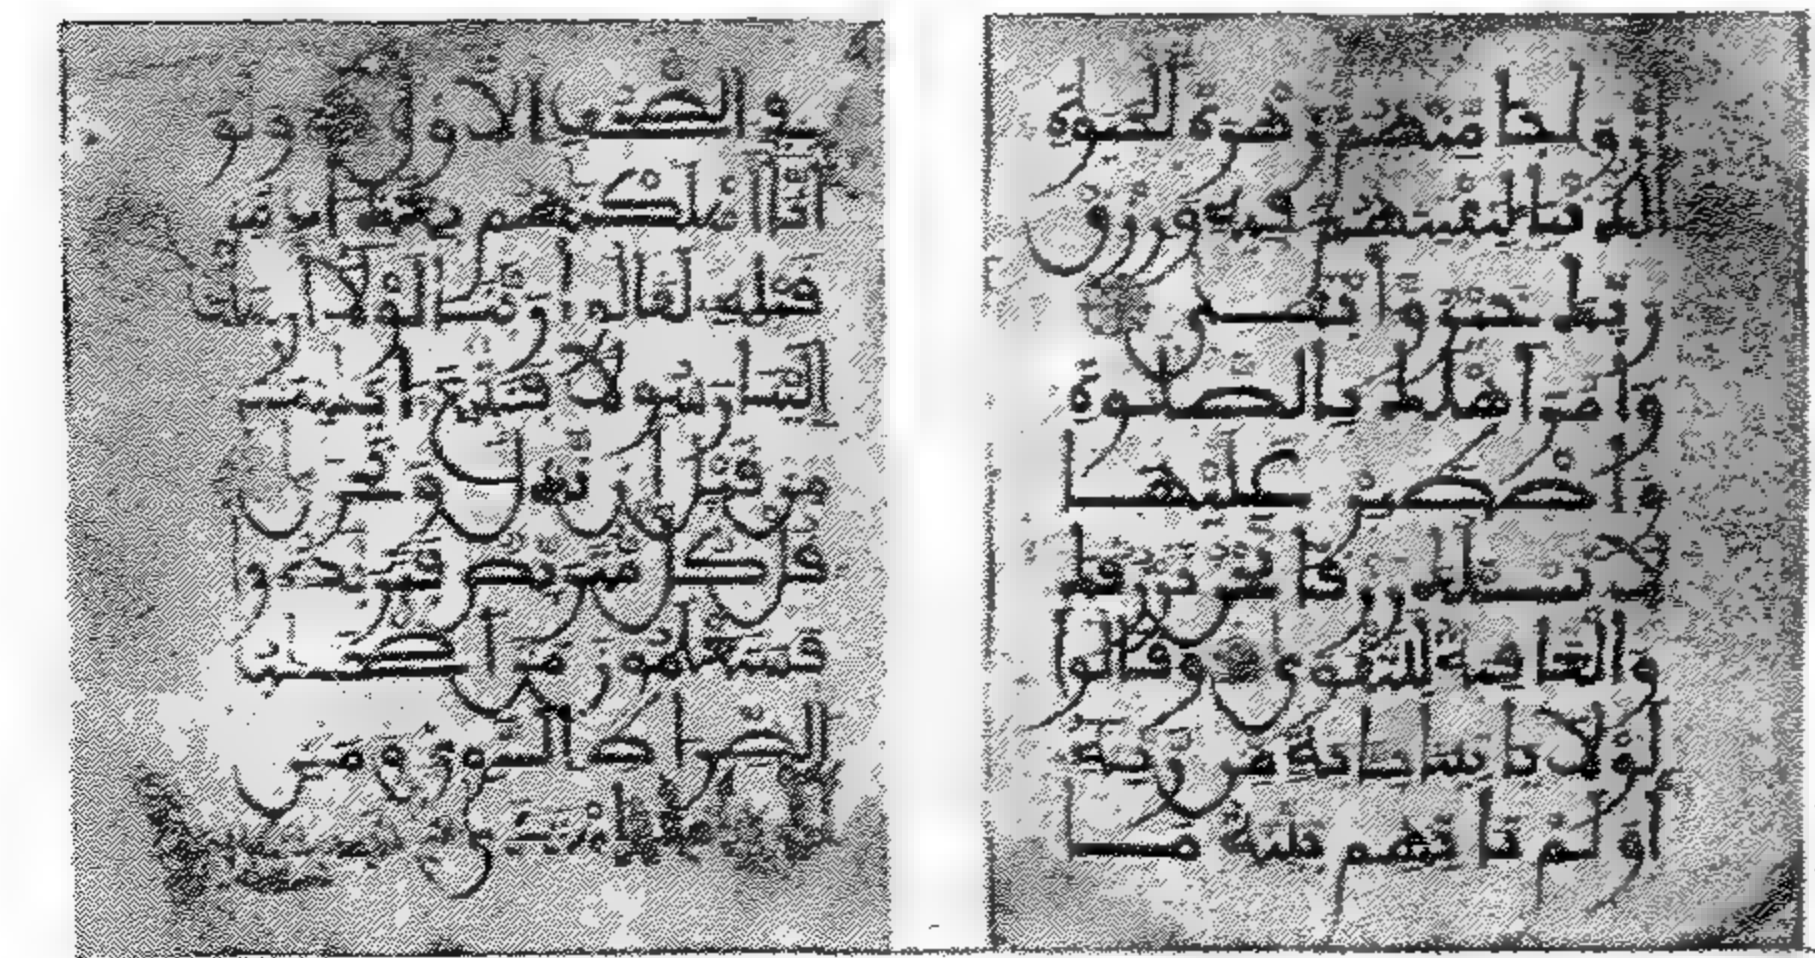 أزواجا منهم زهرة الحيوة
الدنيا لنفتنهم فيه ورزق
ربك خير وأبقى
وأمر أهلك بالصلوة
واصطبر عليها
لا نسئلك رزقا نحن نرزقك
والعاقبة للتقوى وقالوا
لولا ياتينا باية من ربه
أولم تاتهم بينة ما
في الصحف الاولى ولو
أنا أهلكنهم بعذاب من
قبله لقالوا ربنا لولا ارسلت
الينا رسولا فنتبع ايتك
من قبل أن نذل ونخزى
قل كل متربص فتربصوا
فستعلمون من أصحب
الصراط السوي ومن